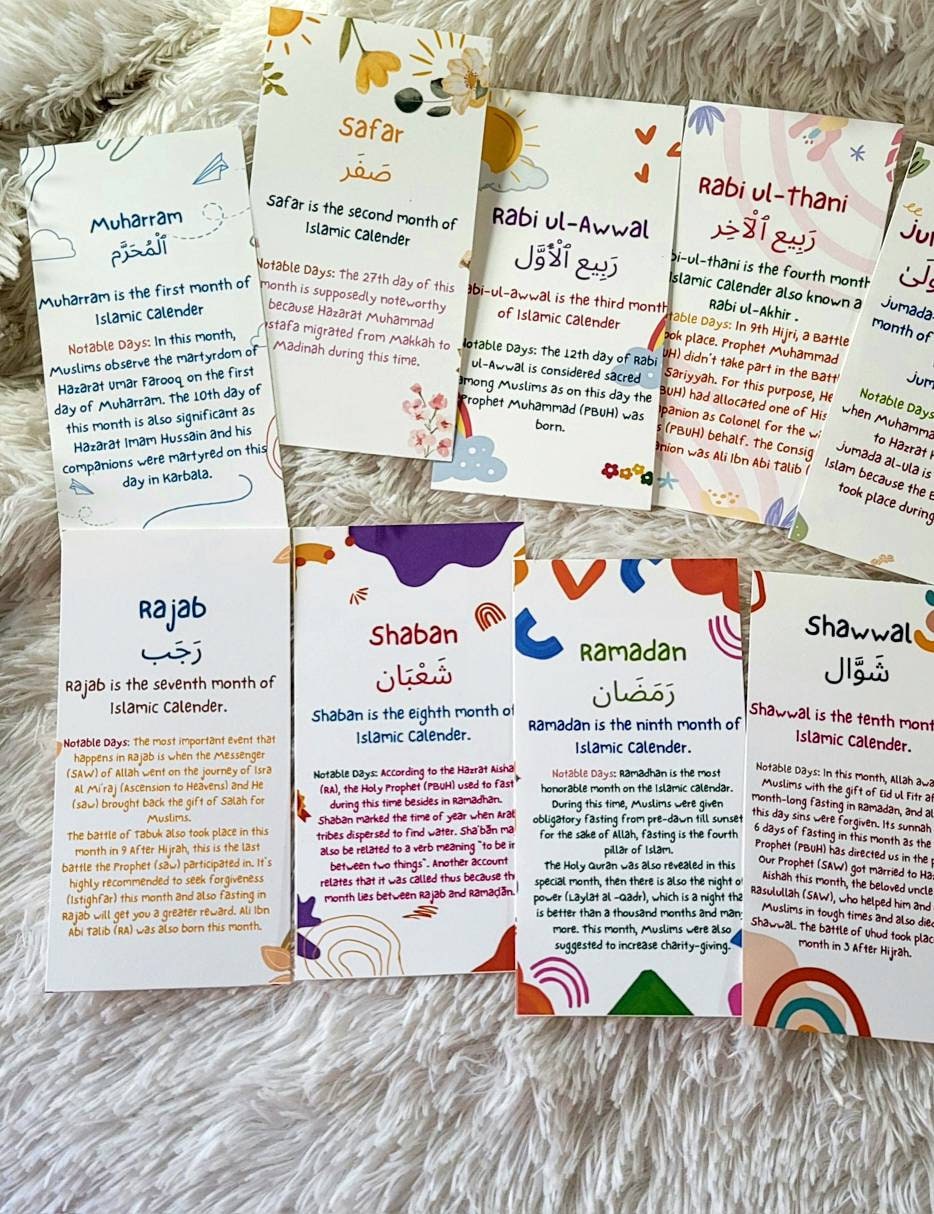 Muharram
ٱلْمُحَرَّم
Muharram is the first month of
Islamic Calender
Notable Days: In this month,
Muslims observe the martyrdom of
Hazarat Umar Farooq on the first
day of Muharram. The 10th day of
this month is also significant as
Hazarat Imam Hussain and his
companions were martyred on this
day in Karbala.
Safar
صَفَر
Safar is the second month of
Islamic Calender
Notable Days: The 27th day of this
month is supposedly noteworthy
because Hazarat Muhammad
stafa migrated from Makkah to
Madinah during this time.
Rabi ul-Awwal
رَبِيع ٱلْأَوَّل
abi-ul-awwal is the third month
of Islamic Calender
Notable Days: The 12th day of Rabi
ul-Awwal is considered sacred
among Muslims as on this day the
Prophet Muhammad (PBUH) was
born.
Rabi ul-Thani
رَبِيع ٱلْآخِر
bi-ul-thani is the fourth month
Islamic Calender also known a
Rabi ul-Akhir .
table Days: In 9th Hijri, a Battle
ook place. Prophet Muhammad
UH) didn't take part in the Batt
Sariyyah. For this purpose, He
BUH) had allocated one of His
panion as Colonel for the w
s (PBUH) behalf. The Consig
anion was Ali Ibn Abi talib (
Ju
ولىٰ
Jumada
month of
Jum
Notable Days
when Muhamma
to Hazrat
Jumada al-ula is
Islam because the
took place during
Rajab
رَجَب
Rajab is the seventh month of
Islamic Calender.
Notable Days: The most important event that
happens in Rajab is when the Messenger
(SAW) of Allah went on the journey of Isra
Al Mi'raj (Ascension to Heavens) and He
(saw) brought back the gift of Salah for
Muslims.
The battle of Tabuk also took place in this
month in 9 After Hijrah, this is the last
battle the Prophet (saw) participated in. It's
highly recommended to seek forgiveness
(Istighfar) this month and also fasting in
Rajab will get you a greater reward. Ali Ibn
Abi Talib (RA) was also born this month.
Shaban
شَعْبَان
Shaban is the eighth month of
Islamic Calender.
Notable Days: According to the Hazrat Aisha
(RA), the Holy Prophet (PBUH) used to fast
during this time besides in Ramadhan.
Shaban marked the time of year when Arab
tribes dispersed to find water. Sha'bān ma
also be related to a verb meaning "to be in
between two things". Another account
relates that it was called thus because the
month lies between Rajab and Ramaḍān.
Ramadan
رَمَضَان
Ramadan is the ninth month of
Islamic Calender.
Notable Days: Ramadhan is the most
honorable month on the Islamic calendar.
During this time, Muslims were given
obligatory fasting from pre-dawn till sunset
for the sake of Allah, fasting is the fourth
pillar of Islam.
The Holy Quran was also revealed in this
special month, then there is also the night o
power (Laylat al -Qadr), which is a night tha
is better than a thousand months and man
more. This month, Muslims were also
suggested to increase charity-giving.
Shawwal
شَوَّال
Shawwal is the tenth mont
Islamic Calender.
Notable Days: In this month, Allah awa
Muslims with the gift of Eid ul Fitr af
month-long fasting in Ramadan, and al
this day sins were forgiven. Its sunnah
6 days of fasting in this month as the
Prophet (PBUH) has directed us in the p
Our Prophet (SAW) got married to Ha
Aishah this month, the beloved uncle
Rasulullah (SAW), who helped him and
Muslims in tough times and also died
Shawwal. The battle of Uhud took plac
month in 3 After Hijrah.